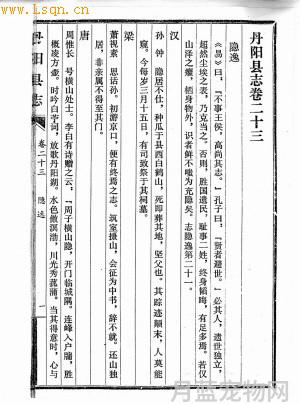 www.Lsqn.cn
丹阳县志卷二十三
隐逸
《易》曰，『不事王侯，高尚其志。』孔子曰，『贤者避世。』必其人，遗世独立，
超然尘埃之表，乃克当之。否则，胜国遗民，耻事二姓，终身韬晦，有足多焉。若仅
山泽之癯，栖身物外，识者鲜不嗤为充隐矣。志隐逸第二十一。
汉
孙 钟 隐居不仕，种瓜于县西白鹤山，死即葬其地，坚父也。其踪迹颠末，人莫能
窥。今每岁三月十五日，有司致祭于其祠墓。
梁
萧视素 思话孙。初游京口，便有终焉之志。筑室摄山，会征为中书，辞不就。还山独
居，非亲属不得至其门。
唐
周惟长 号横山处士。李白有诗赠之云，『周子横山隐，开门临城隅。连峰入户牖，胜
概凌方壶。时吟白苧词，放歌丹阳湖。水色傲溟渤，川光秀菰蒲。当其得意时，心与
丹阳县志
卷二十三
隐逸
一
月蓝宠物网